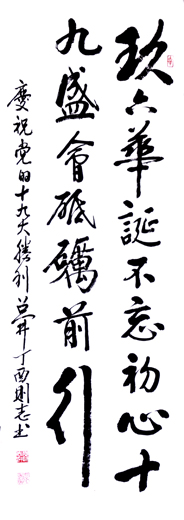 玖六華誕不忘初心十
九盛會砥礪前行
慶祝党的十九大勝利召开丁酉則志书